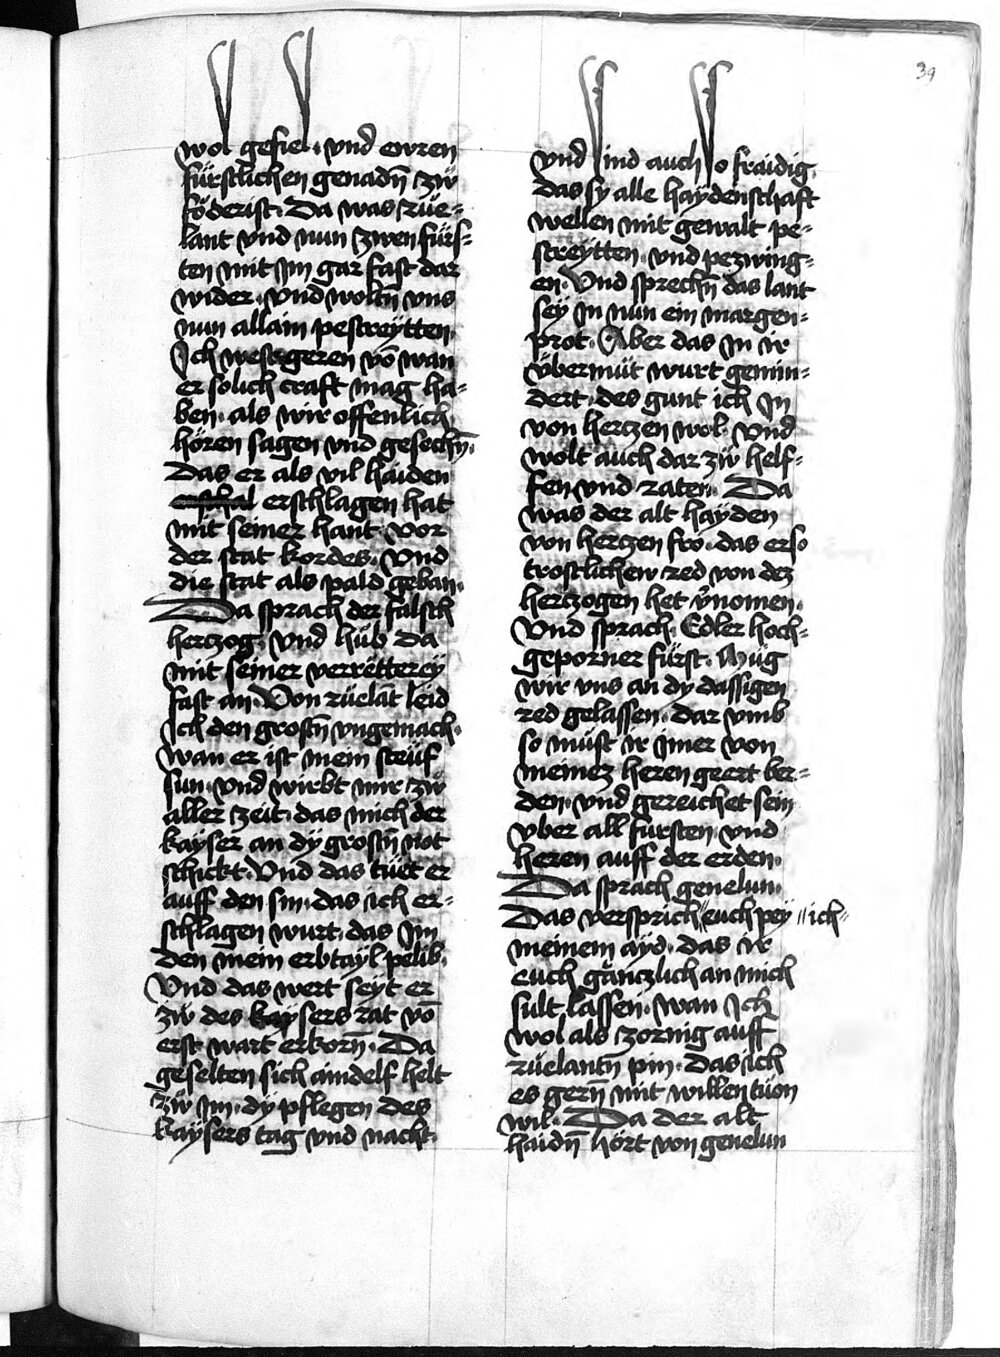 39
wol gefiel · vnd ewren
fürstlichen genadn̄ zw̋
föderist · Da was rüe-
lant vnd nun zwen fürs-
ten mit Im gar fast dar
wider · vnd woltn̄ vns
nun allain pestreÿtten ·
Ich west geren vō wan
er sölich craft mag ha-
ben · als wir offenlich
hören sagen vnd gesechn̄ ·
Das er als vil haiden
erschlagen hat
mit seiner hant · vor
der stat kordes · Vnd
die stat als pald geban ·
Da sprach der falsch
herczog · Vnd hüb da
mit seiner verrëtterey
fast an · Von rüelāt leid
Ich den grostn̄ vngemach ·
wan er ist mein steüf
sun · vnd wirbt mir zw̋
aller zeit · das mich der
kayser an dy grostn̄ not
schickt · Vnd das tüet er
auff den sin · das ich er-
schlagen wurt · das Im
den mein erbtaÿl pelib ·
Vnd das wert seÿt er
zw̋ des kaÿsers rat vō
erst wart erkorn̄ · Da
geselten sich aindelf helt
zw̋ Im · dy pflegen des
kaÿsers tag vnd nacht ·
vnd sind auch so fraidig ·
das sy alle haÿdenschaft
wellen mit gewalt pe-
streÿtten · vnd pezwing-
en · Vnd sprechn̄ das lant
seÿ In nun ein margen-
prot · Aber das In ir
übermüt wurt gemin-
dert · des gunt ich In
von herczen wol · Vnd
wolt auch dar zw̋ helf-
fen vnd raten · Da
was der alt haÿden
von herczen fro · das er so
trostlichew red von dez
herczogen het v̄nomen ·
Vnd sprach · Edler hoch-
geporner fürst · Müg
wir vns an dy dassigen
red gelassen · Dar vmb
so müst ir Imer von
meinez heren geert ber-
den · vnd gereichet sein
vber all fursten vnd
heren auff der erden ·
Da sprach genelun ·
Das versprich euch peÿ ich
meinem aÿd · das ir
euch gänczlich an mich
sult lassen · wan Ich
wol als zornig auff
rüelantn̄ pin · Das ich
es gern̄ mit willen tüon
wil · Da der alt
haidn̄ hört von genelun